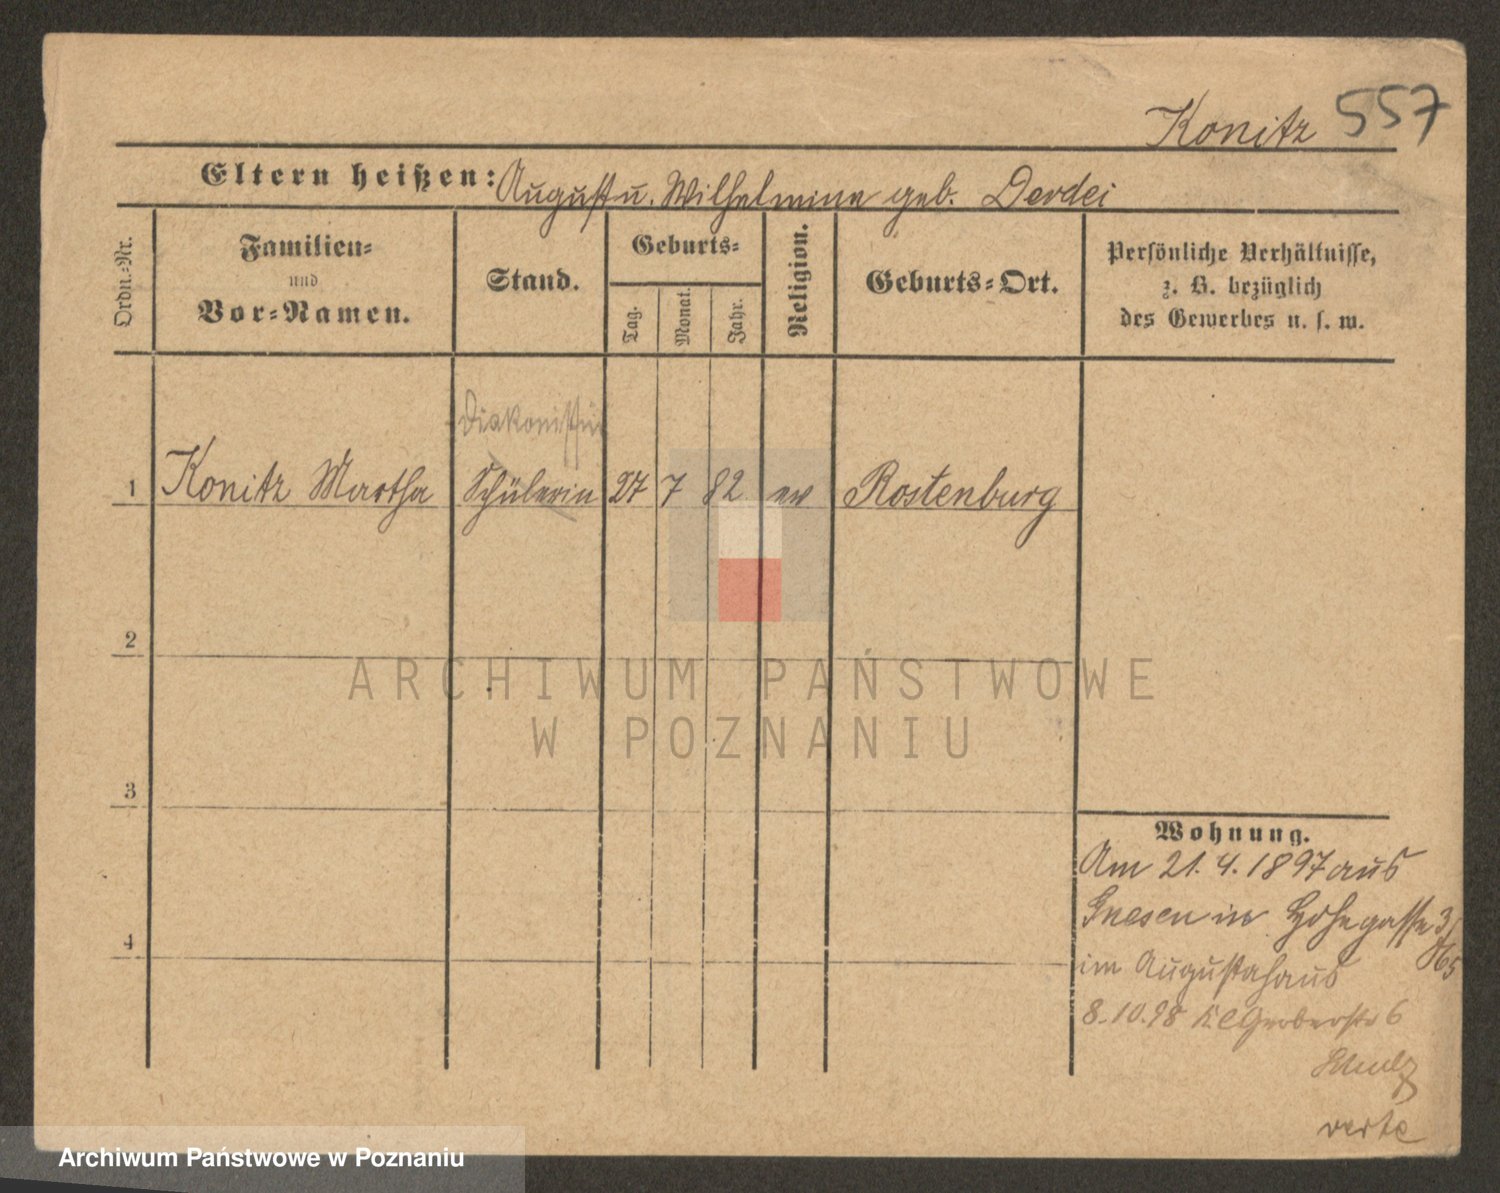 Konitz 557
Eltern heißen: August u. Wilhelmine geb. Derdei
Ordn.-Nr.
Familien-
und
Vor-Namen.
Stand.
Geburts-
Tag.
Monat.
Jahr.
Religion.
Geburts-Ort.
Persönliche Verhältnisse,
z. B. bezüglich
des Gewerbes u. s. w.
Diakonissin
1 Konitz Martha Schülerin 27 7 82 ev Rostenburg
2
3
4
Wohnung.
Am 21.4.1897 aus
Gnesen in Hohegasse 3/
im Augustahaus
8.10.98 Kl Gerberstr 6
Schulz
verte
ARCHIWUM PAŃSTWOWE
W POZNANIU
Archiwum Państwowe w Poznaniu